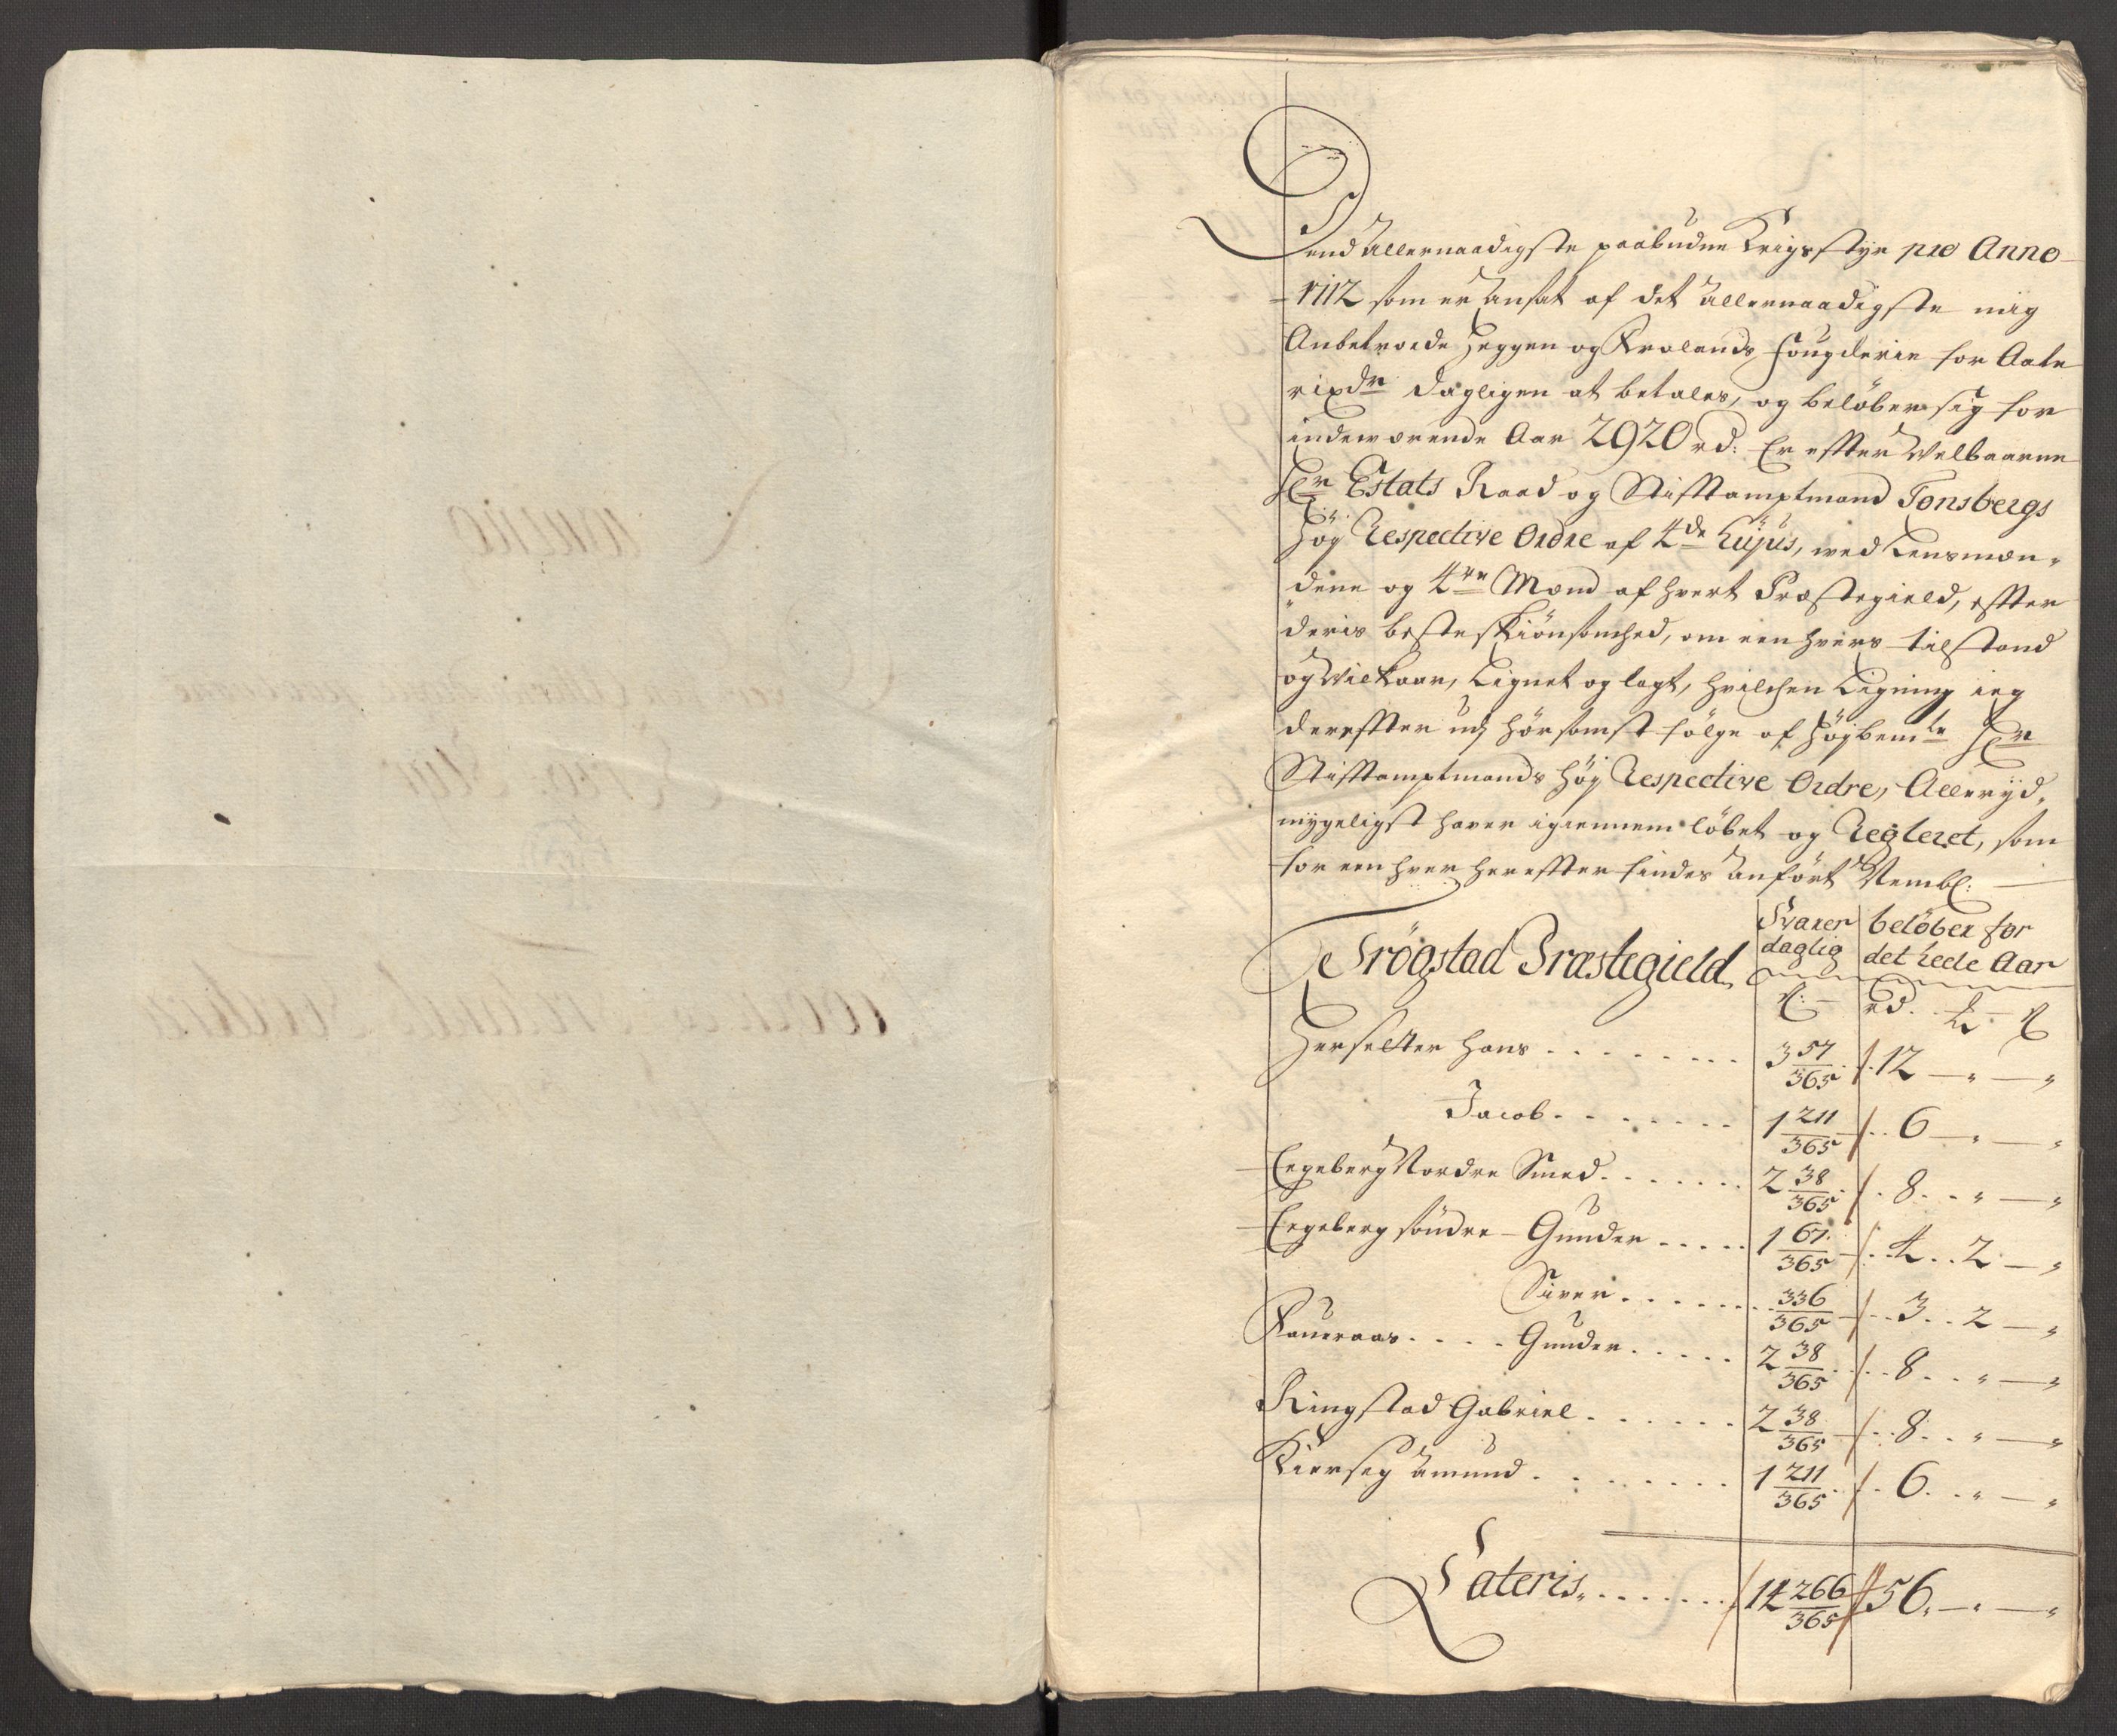 Dend allernaadigste paabudne Krigsstyr pro Anno
1712 som er ansat af det allernaadigste mig
Anbetroede Heggen og Frølands fougderie for Aate
rixdr daglligen at betales, og beløber sig for
indeværende Aar 2920 rd: Er effter Velbaarne
Hr Estats Raad og Stifftamptmand Tonsbergs
Høy Respective Ordre af 4de hujus, wed Lensmæn-
dene og 4re Mænd af hvert Præstegield, effter
deris beste skiønsomhed, om een hvers tilstand
og Vilkaar, Lignet og lagt, hvilchen Ligning ieg
dereffter udj hørsomst følge af høybemte Hr
Stifftamptmands høy Respective Ordre, Alleryd-
mygeligst haver igiennemløbet og Regleret, som
for een hver hereffter findes anført Nembl:
Trøgstad Præstegield
Svarer daglig | beløber for det heele Aar
ß: | rd. k ß
Herseltter Hans . . . 3 57/365 . 12 — " — "
Jacob . . . 1 211/365 . . 6 — " — "
Eegeberg Nordre Smed . . . 2 38/365 . . 8 . . " — "
Eegeberg søndre — Gunder . . . 1 67/365 . . 4 . . 2 — "
Siver . . . 336/365 . . 3 . . 2 — "
Faueraas . . . Gunder . . . 2 38/365 . . 8 . . " — "
Ringstad Gabriel . . . 2 38/365 . . 8 . . " — "
Kierseg Amund . . . 1 211/365 . . 6 . . " — "
Lateris . . . 14 266/365 56 . — " — "